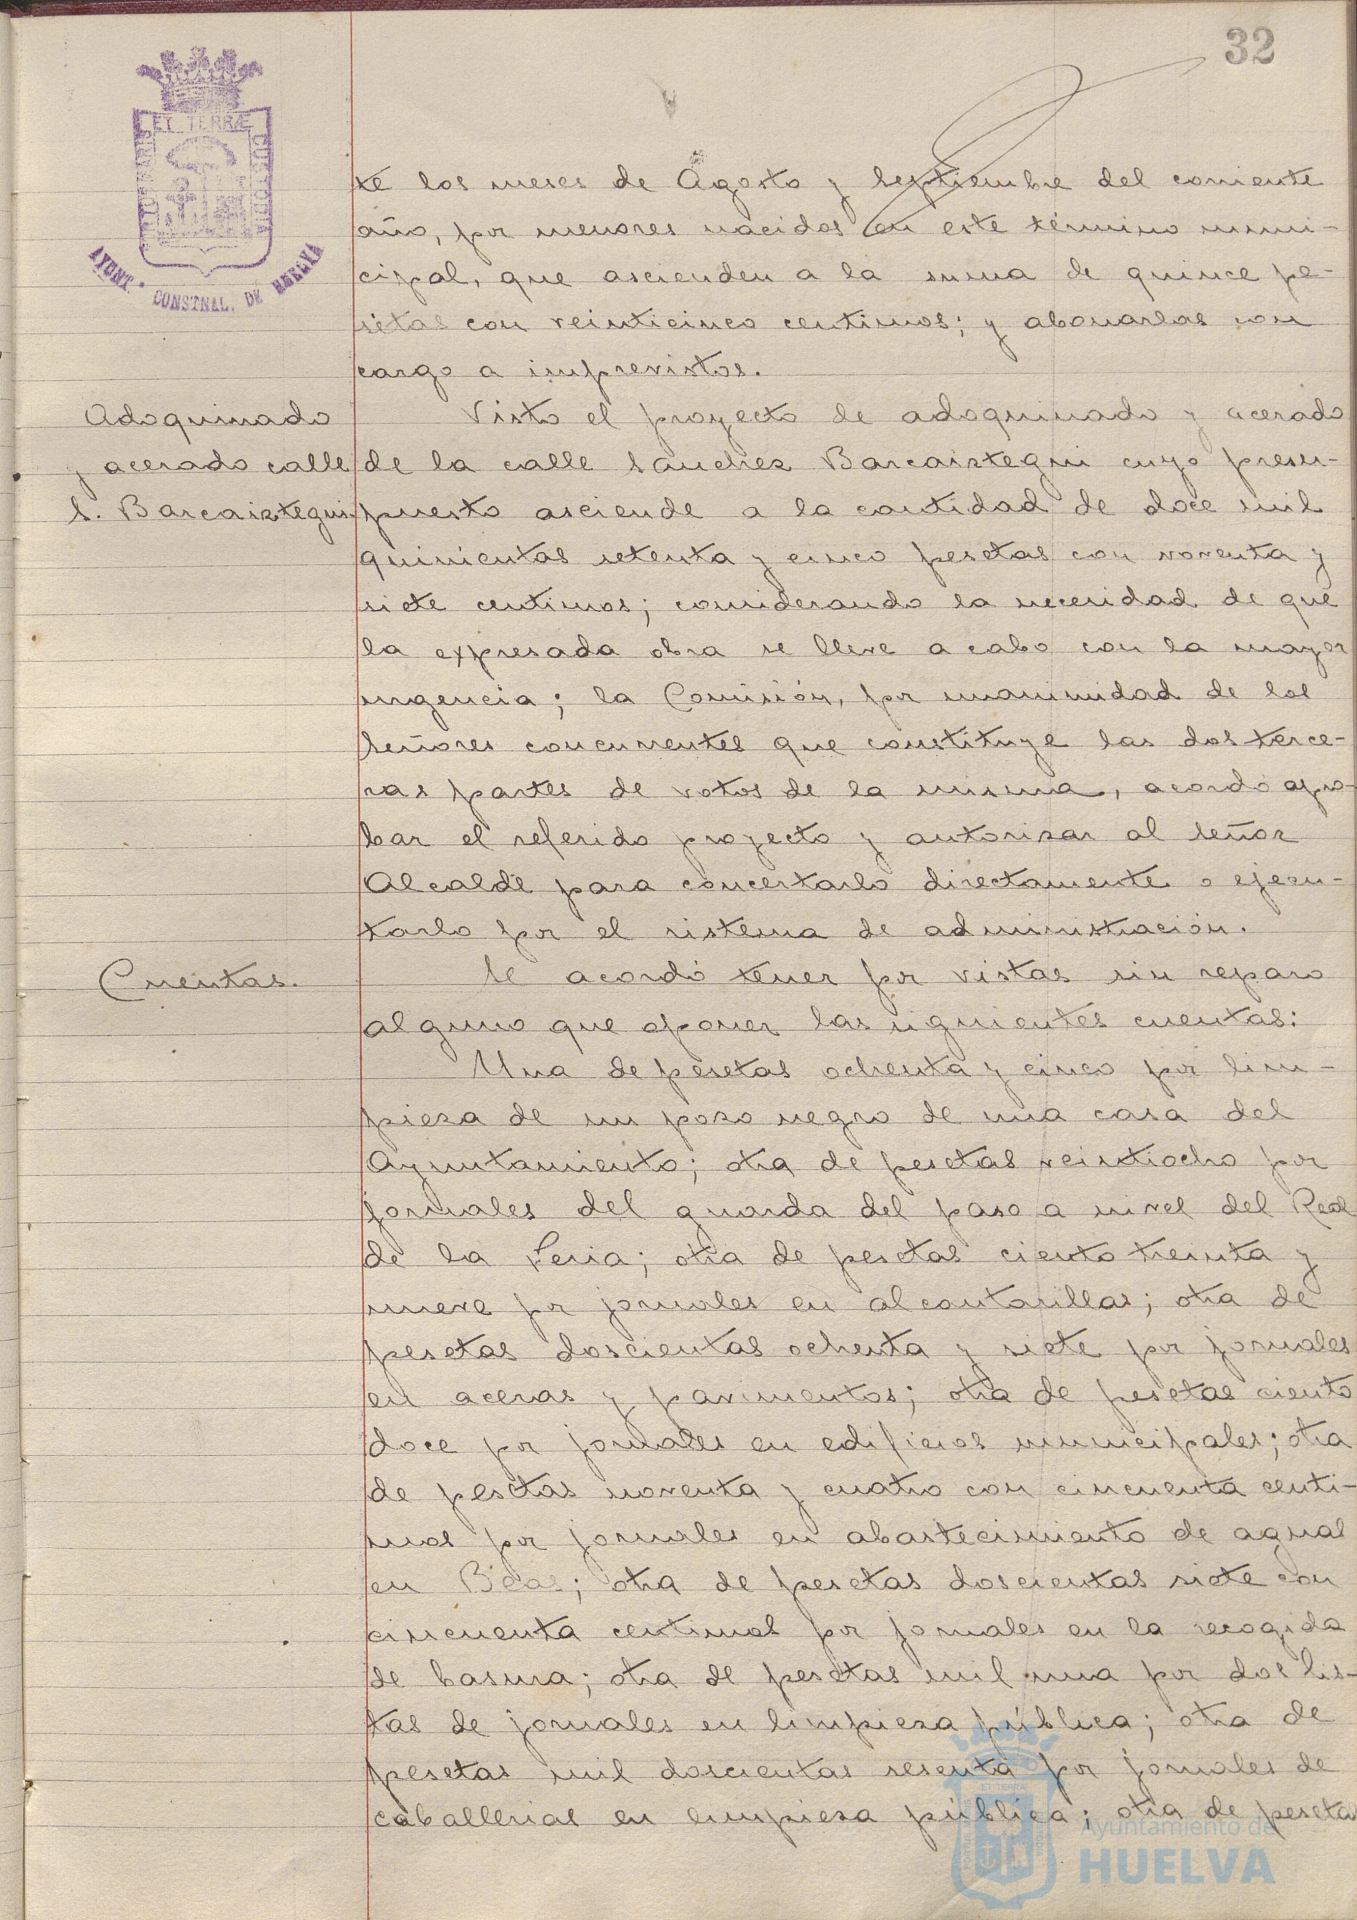 32
ET TERRÆ
AYUNT.º CONSTNAL. DE HUELVA
te los meses de Agosto y Septiembre del corriente
año, por menores nacidos en este término muni-
cipal, que ascienden a la suma de quince pe-
setas con veinticinco centimos; y abonarlas con
cargo a imprevistos.
Adoquinado
y acerado calle
S. Barcaiztegui.
Visto el proyecto de adoquinado y acerado
de la calle Sanchez Barcaiztegui cuyo presu-
puesto asciende a la cantidad de doce mil
quinientas setenta y cinco pesetas con noventa y
siete centimos; considerando la necesidad de que
la expresada obra se lleve a cabo con la mayor
urgencia; la Comisión, por unanimidad de los
señores concurrentes que constituye las dos terce-
ras partes de votos de la misma, acordo apro-
bar el referido proyecto y autorizar al señor
Alcalde para concertarlo directamente o ejecu-
tarlo por el sistema de administración.
Cuentas.
Se acordó tener por vistas sin reparo
alguno que oponer las siguientes cuentas:
Una de pesetas ochenta y cinco por lim-
pieza de un pozo negro de una casa del
Ayuntamiento; otra de pesetas veintiocho por
jornales del guarda del paso a nivel del Real
de la Feria; otra de pesetas ciento treinta y
nueve por jornales en alcantarillas; otra de
pesetas doscientas ochenta y siete por jornales
en aceras y pavimentos; otra de pesetas ciento
doce por jornales en edificios municipales; otra
de pesetas noventa y cuatro con cincuenta centi-
mos por jornales en abastecimiento de aguas
en Beas; otra de pesetas doscientas siete con
cincuenta centimos por jornales en la recogida
de basura; otra de pesetas mil una por dos lis-
tas de jornales en limpieza pública; otra de
pesetas mil doscientas sesenta por jornales de
caballerias en limpieza pública; otra de pesetas
Ayuntamiento de
HUELVA